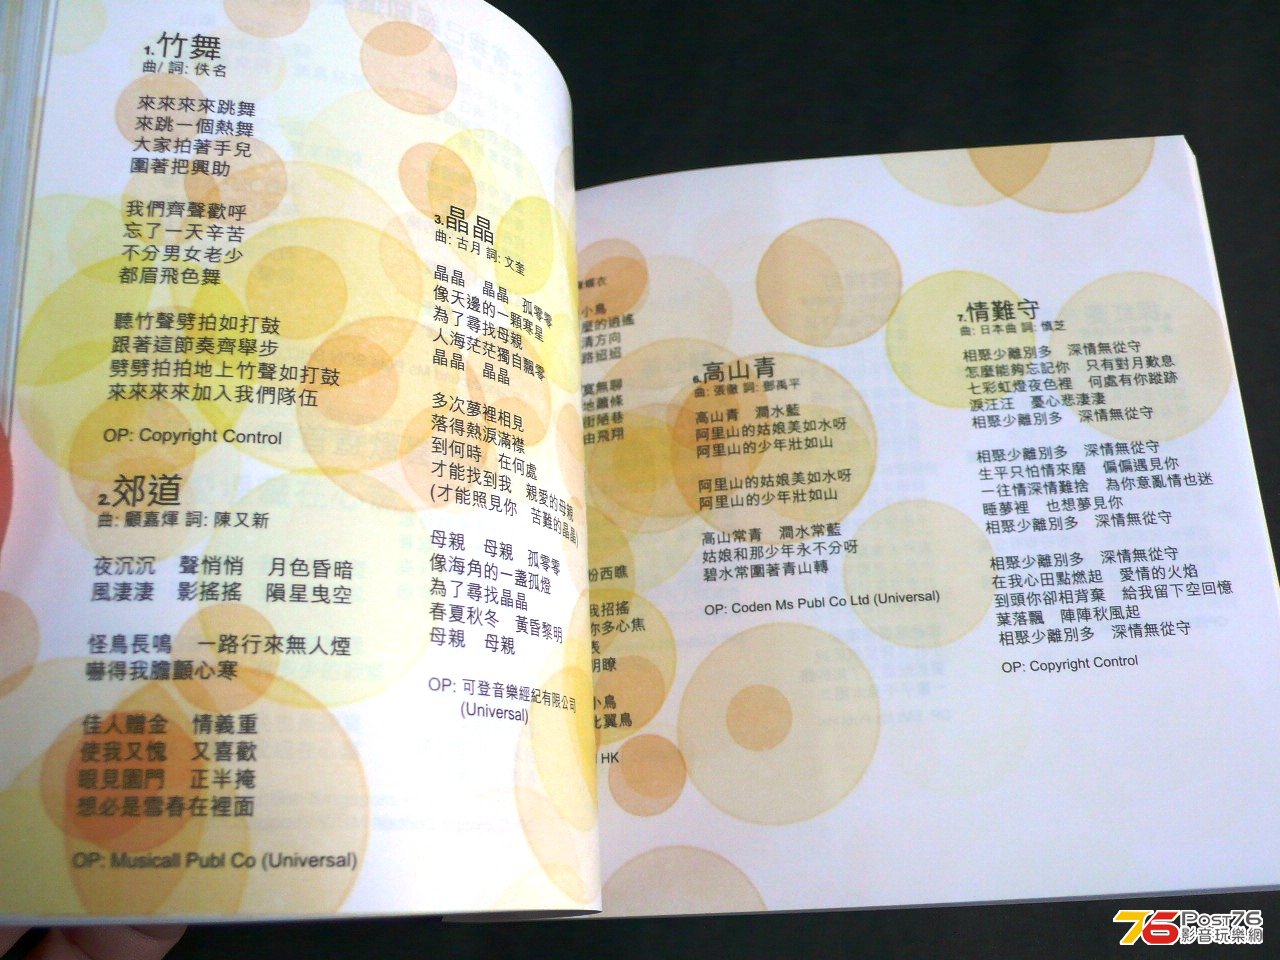 1.竹舞
曲/ 詞: 佚名
來來來來跳舞
來跳一個熱舞
大家拍著手兒
圍著把興助
我們齊聲歡呼
忘了一天辛苦
不分男女老少
都眉飛色舞
聽竹聲劈拍如打鼓
跟著這節奏齊舉步
劈劈拍拍地上竹聲如打鼓
來來來來加入我們隊伍
OP: Copyright Control
2.郊道
曲: 顧嘉煇 詞: 陳又新
夜沉沉 聲悄悄 月色昏暗
風淒淒 影搖搖 隕星曳空
怪鳥長鳴 一路行來無人煙
嚇得我膽顫心寒
佳人贈金 情義重
使我又愧 又喜歡
眼見園門 正半掩
想必是雪春在裡面
OP: Musicall Publ Co (Universal)
3.晶晶
曲: 古月 詞: 文奎
晶晶 晶晶 孤零零
像天邊的一顆寒星
為了尋找母親
人海茫茫獨自飄零
晶晶 晶晶
多次夢裡相見
落得熱淚滿襟
到何時 在何處
才能找到我 親愛的母親
(才能照見你 苦難的晶晶)
母親 母親 孤零零
像海角的一盞孤燈
為了尋找晶晶
春夏秋冬 黃昏黎明
母親 母親
OP: 可登音樂經紀有限公司
(Universal)
蝶衣
小鳥
麼的逍遙
清方向
路迢迢
寞無聊
地蕭條
街陋巷
由飛翔
份西瞧
我招搖
你多心焦
表
明瞭
小鳥
比翼鳥
HK
6.高山青
曲: 張徹 詞: 鄧禹平
高山青 澗水藍
阿里山的姑娘美如水呀
阿里山的少年壯如山
阿里山的姑娘美如水呀
阿里山的少年壯如山
高山常青 澗水常藍
姑娘和那少年永不分呀
碧水常圍著青山轉
OP: Coden Ms Publ Co Ltd (Universal)
7.情難守
曲: 日本曲 詞: 慎芝
相聚少離別多 深情無從守
怎麼能夠忘記你 只有對月歎息
七彩虹燈夜色裡 何處有你蹤跡
淚汪汪 憂心悲淒淒
相聚少離別多 深情無從守
相聚少離別多 深情無從守
生平只怕情來磨 偏偏遇見你
一往情深情難捨 為你意亂情也迷
睡夢裡 也想夢見你
相聚少離別多 深情無從守
相聚少離別多 深情無從守
在我心田點燃起 愛情的火焰
到頭你卻相背棄 給我留下空回憶
葉落飄 陣陣秋風起
相聚少離別多 深情無從守
OP: Copyright Control
76 Post76
影音玩樂網